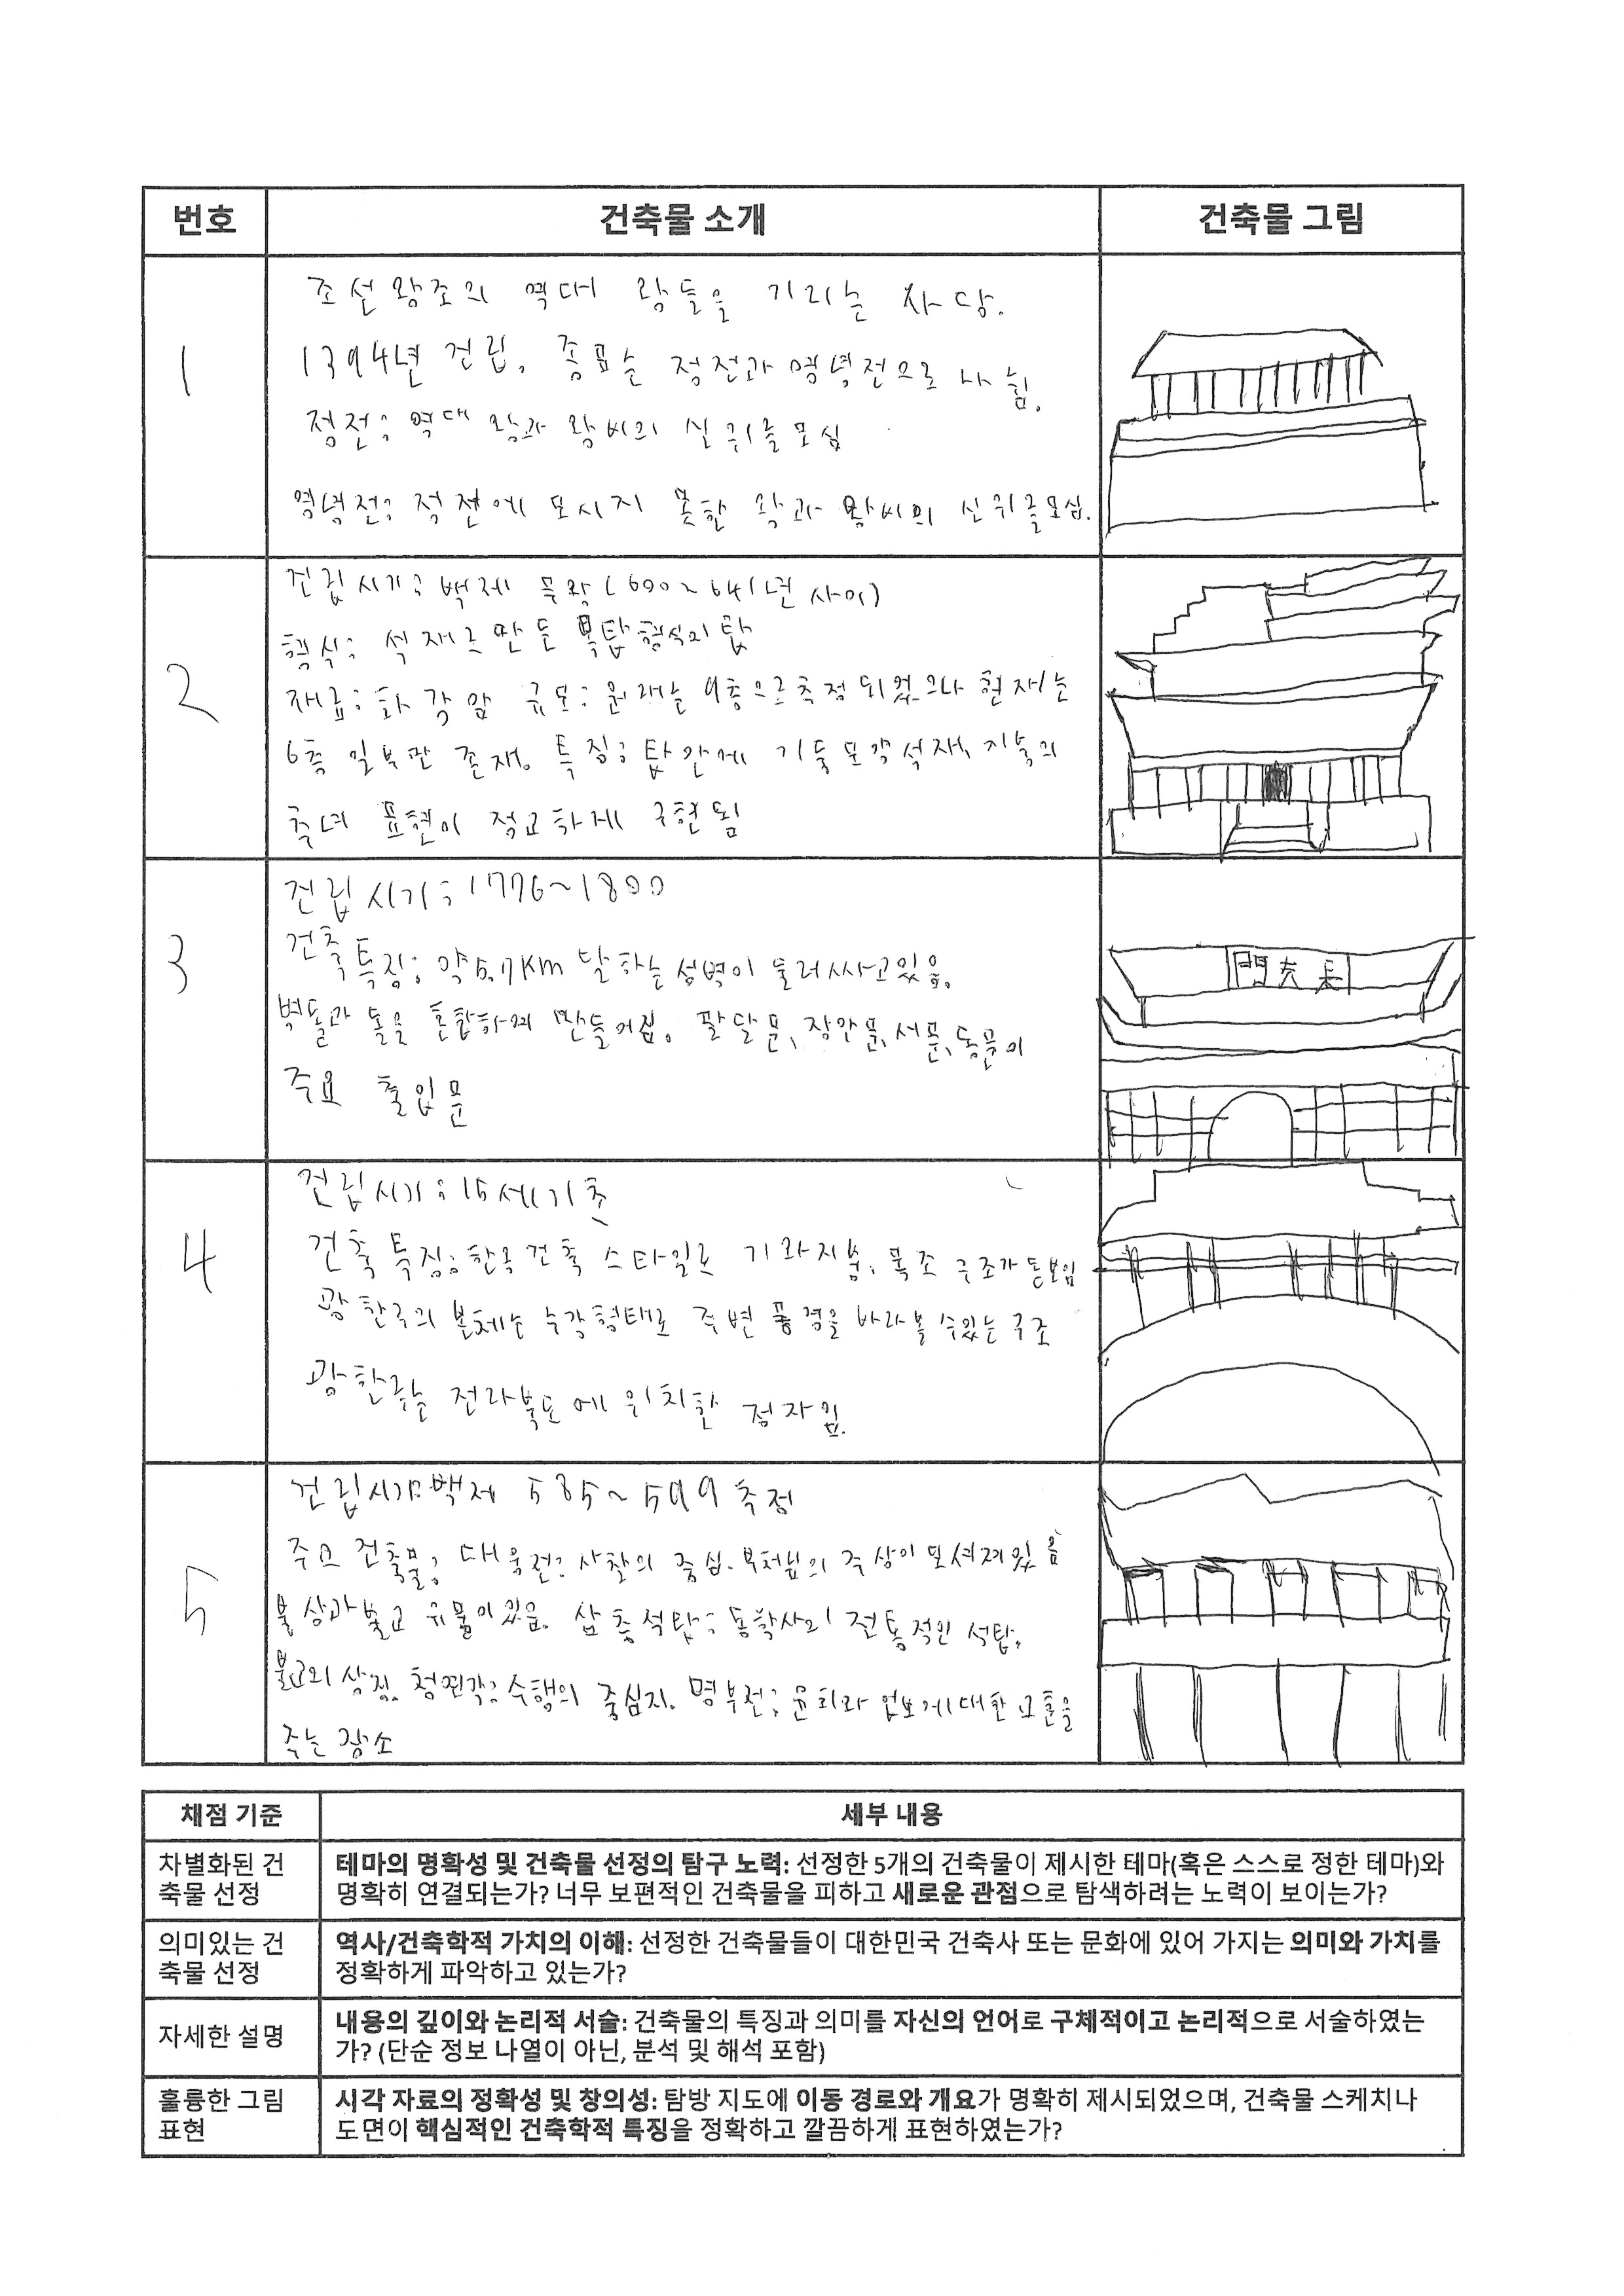 번호 건축물 소개 건축물 그림
1
조선왕조의 역대 왕들을 기리는 사당.
1394년 건립, 종묘는 정전과 영녕전으로 나뉨.
정전: 역대 왕과 왕비의 신위를 모심
영녕전: 정전에 모시지 못한 왕과 왕비의 신위를 모심.
2
건립시기: 백제 무왕(600~641년 사이)
형식: 석재로 만든 목탑형식의 탑
재료: 화강암 규모: 원래는 9층으로 추정되었으나 현재는
6층 일부만 존재. 특징: 탑 안에 기둥모양 석재, 지붕의
추녀 표현이 정교하게 구현됨
3
건립시기: 1776~1800
건축특징: 약 5.7km 달하는 성벽이 둘러싸고있음.
벽돌과 돌을 혼합하여 만들어짐. 팔달문, 장안문, 서문, 동문이
주요 출입문
門安長
4
건립시기: 15세기 초
건축 특징: 한옥건축 스타일로 기와지붕, 목조 구조가 돋보임
광한루의 본체는 누각형태로 주변 풍경을 바라볼 수있는 구조
광한루는 전라북도에 위치한 정자임.
5
건립시기: 백제 585~599 추정
주요 건축물: 대웅전: 사찰의 중심. 부처님의 주상이 모셔져있음
불상과 불교 유물이있음. 삼층석탑: 동학사의 전통적인 석탑.
불교의 상징. 청련각: 수행의 중심지. 명부전: 윤회와 업보에대한 교훈을
주는 장소
채점 기준 세부 내용
차별화된 건축물 선정
테마의 명확성 및 건축물 선정의 탐구 노력: 선정한 5개의 건축물이 제시한 테마(혹은 스스로 정한 테마)와
명확히 연결되는가? 너무 보편적인 건축물을 피하고 새로운 관점으로 탐색하려는 노력이 보이는가?
의미있는 건축물 선정
역사/건축학적 가치의 이해: 선정한 건축물들이 대한민국 건축사 또는 문화에 있어 가지는 의미와 가치를
정확하게 파악하고 있는가?
자세한 설명
내용의 깊이와 논리적 서술: 건축물의 특징과 의미를 자신의 언어로 구체적이고 논리적으로 서술하였는
가? (단순 정보 나열이 아닌, 분석 및 해석 포함)
훌륭한 그림 표현
시각 자료의 정확성 및 창의성: 탐방 지도에 이동 경로와 개요가 명확히 제시되었으며, 건축물 스케치나
도면이 핵심적인 건축학적 특징을 정확하고 깔끔하게 표현하였는가?